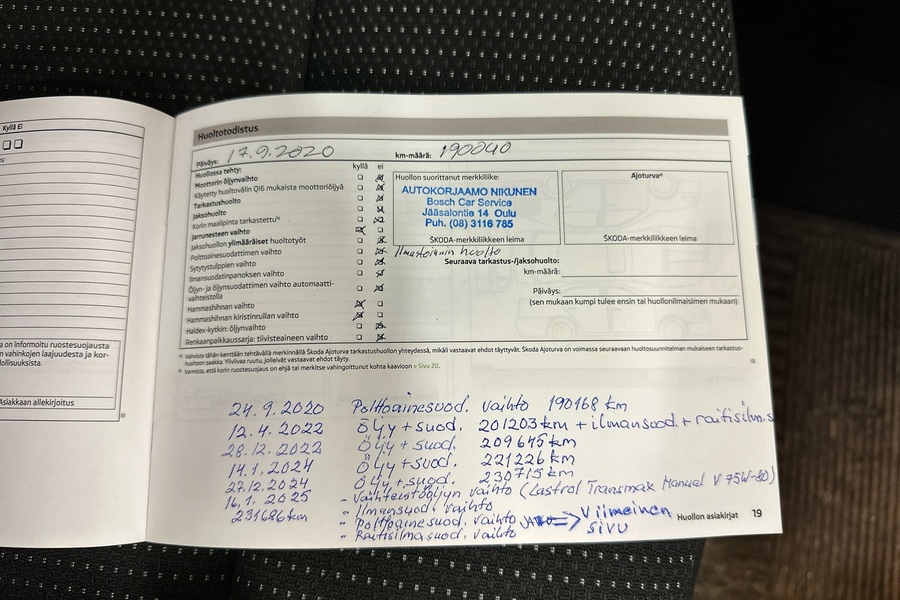 Kyllä Ei
Huoltotodistus
Päiväys: 17.9.2020 km-määrä: 190040
Huollossa tehty: kyllä ei
Moottorin öljynvaihto
Käytetty huoltovälin QI6 mukaista moottoriöljyä
Tarkastushuolto
Jaksohuolto
Korin maalipinta tarkastettu
Jarrunesteen vaihto
Jaksohuollon ylimääräiset huoltotyöt
Polttoainesuodattimen vaihto
Sytytystulppien vaihto
Ilmansuodatinpanoksen vaihto
Öljyn- ja öljynsuodattimen vaihto automaatti-
vaihteistolla
Hammashihnan vaihto
Hammashihnan kiristinrullan vaihto
Haldex-kytkin: öljynvaihto
Renkaanpaikkaussarja: tiivisteaineen vaihto
Huollon suorittanut merkkiliike:
AUTOKORJAAMO NIKUNEN
Bosch Car Service
Jääsalontie 14 Oulu
Puh. (08) 3116 785
ŠKODA-merkkiliikkeen leima
Ajoturva
ŠKODA-merkkiliikkeen leima
Ilmastoinnin huolto
Seuraava tarkastus-/jaksohuolto:
km-määrä:
Päiväys:
(sen mukaan kumpi tulee ensin tai huollonilmaisimen mukaan)
Vahvista tähän kenttään tehtävällä merkinnällä Škoda Ajoturva tarkastushuollon yhteydessä, mikäli vastaavat ehdot täyttyvät. Škoda Ajoturva on voimassa seuraavaan huoltosuunnitelman mukaiseen tarkastus-
huoltoon saakka. Yliviivaa ruutu, jolleivät vastaavat ehdot täyty.
Varmista, että korin ruostesuojaus on ehjä tai merkitse vahingoittunut kohta kaavioon » Sivu 20.
a on informoitu ruostesuojausta
n vahinkojen laajuudesta ja kor-
ollisuuksista.
Asiakkaan allekirjoitus
24.9.2020 Polttoainesuod. vaihto 190168 km
12.4.2022 Öljy + suod. 201203 km + ilmansuod. + raitisilm.s
28.12.2022 Öljy + suod. 209645 km
14.1.2024 Öljy + suod. 221226 km
27.12.2024 Öljy + suod. 230715 km
16.1.2025 - Vaihteistoöljyn vaihto (Castrol Transmax Manual V 75W-80)
231686 km - Ilmansuod. vaihto
- Polttoainesuod. vaihto => Viimeinen
sivu
- Raitisilmasuod. vaihto
Huollon asiakirjat 19